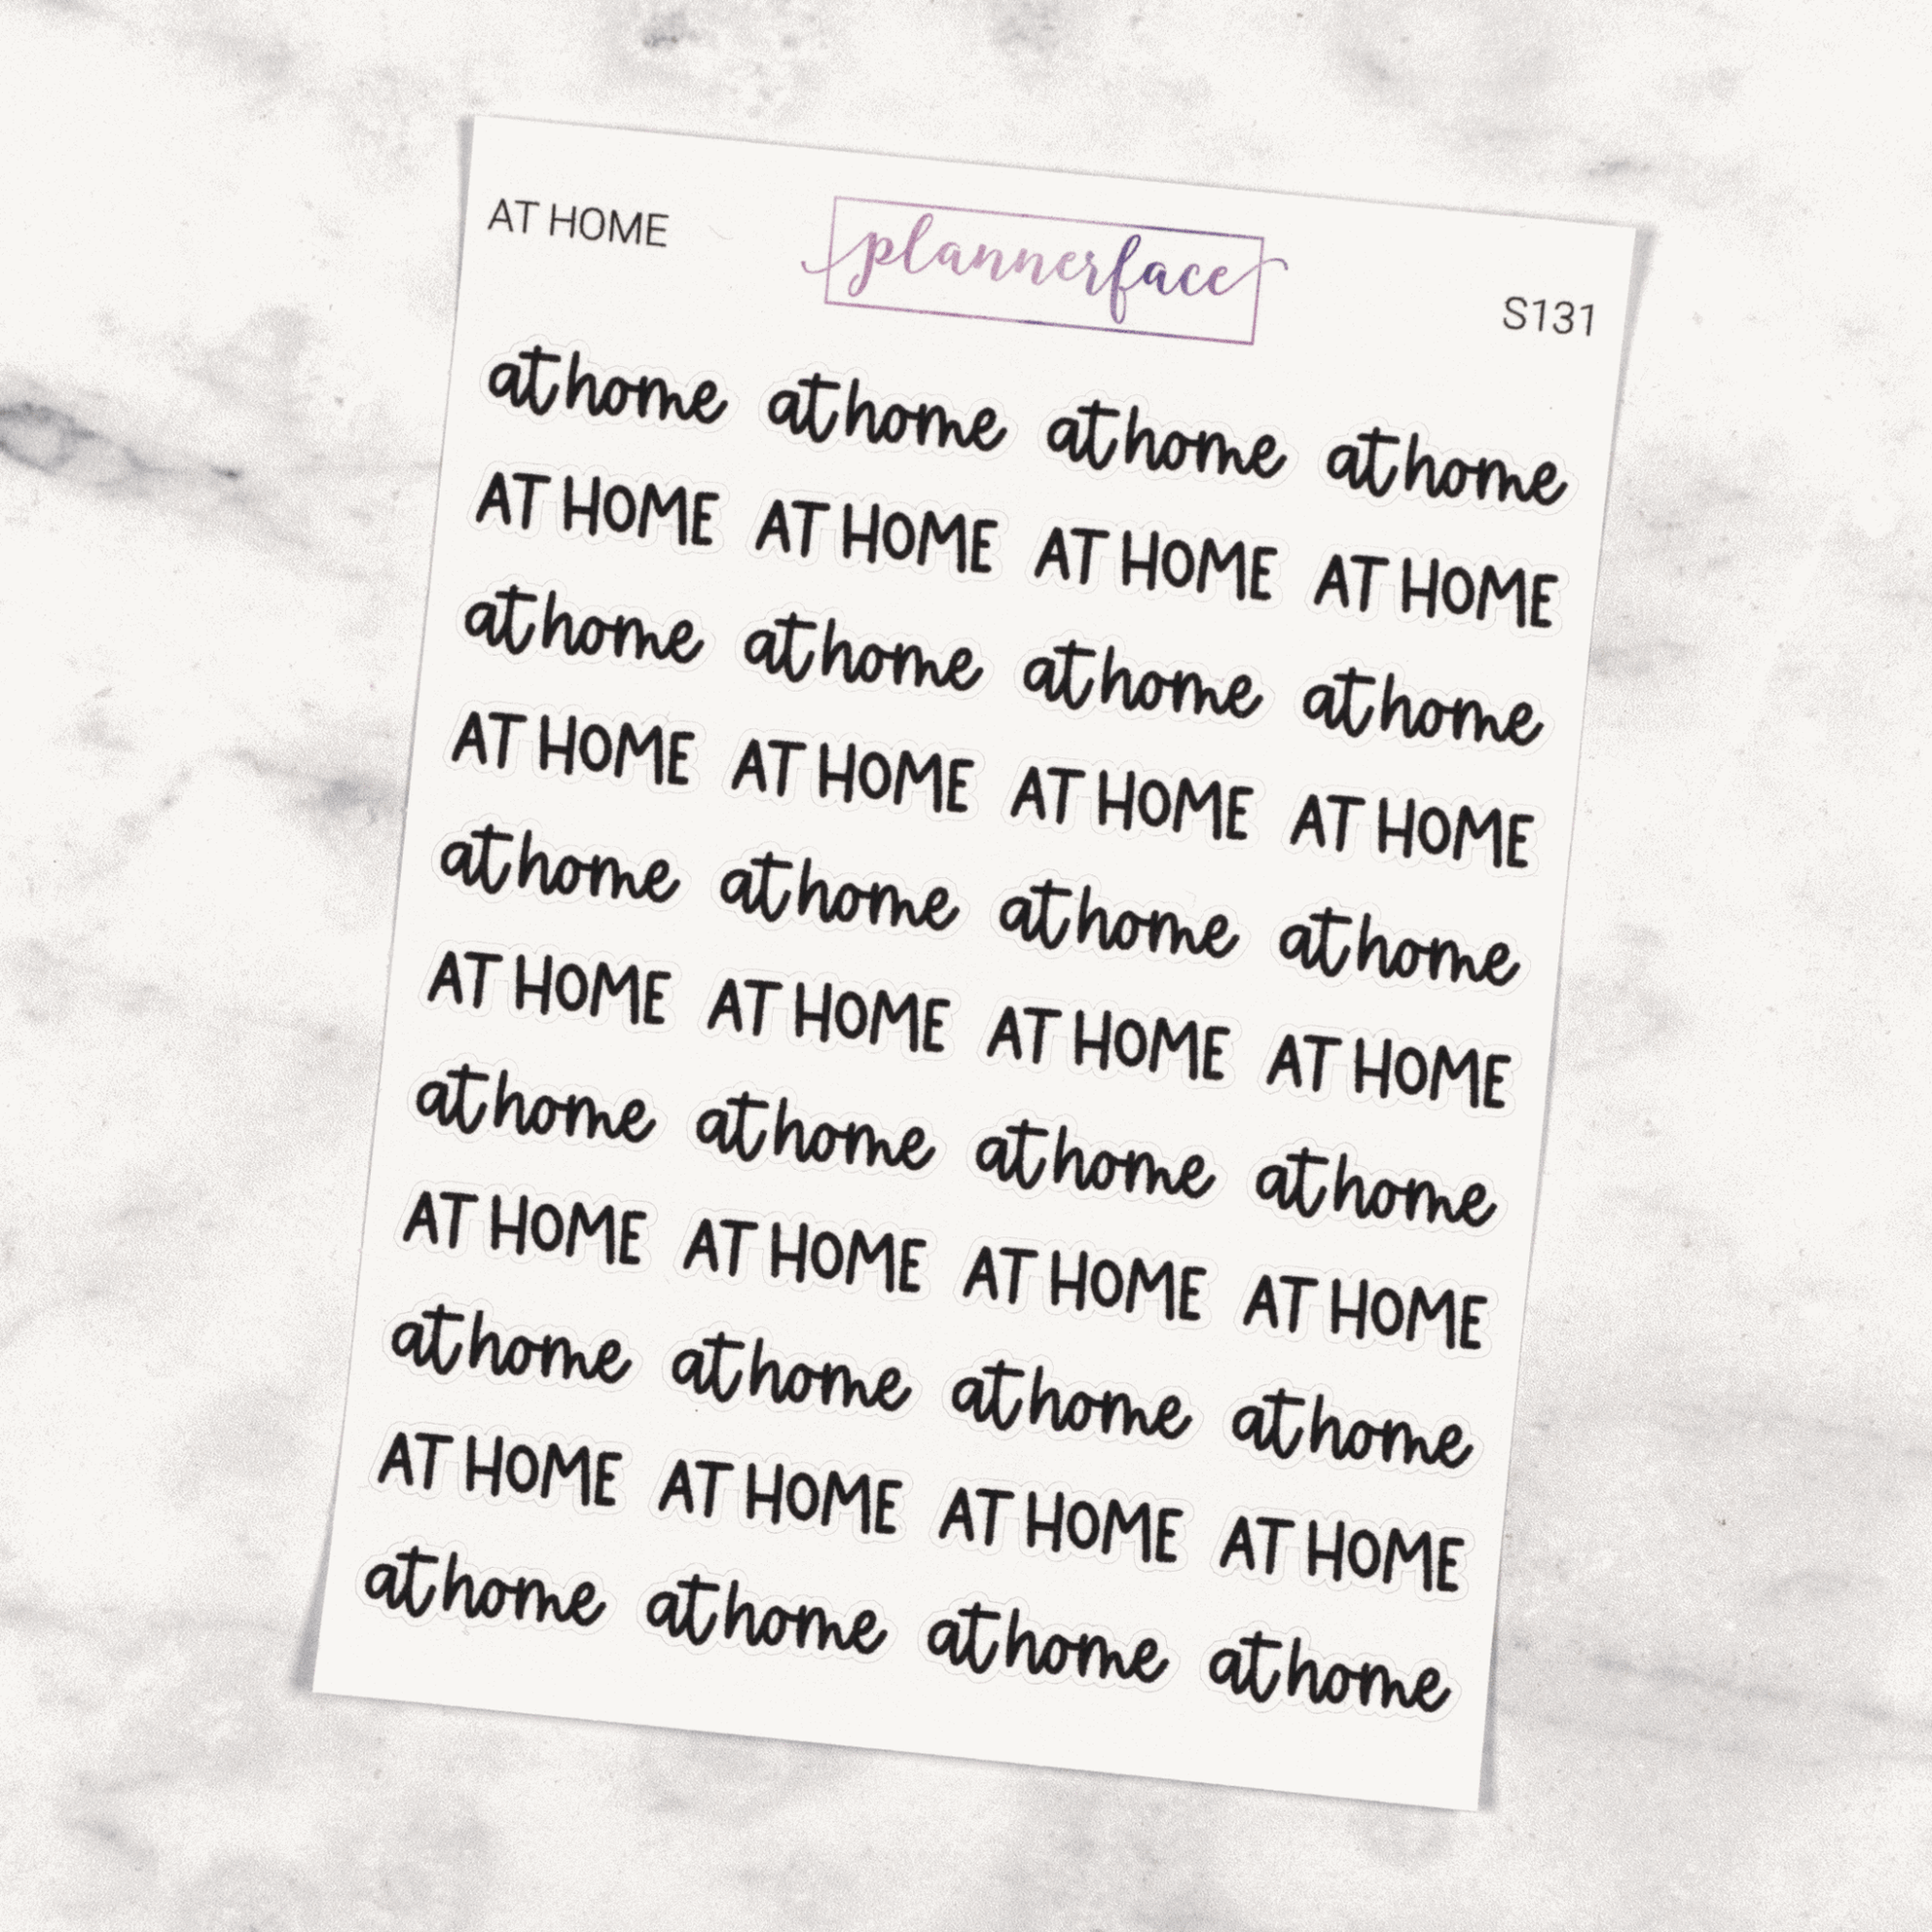 AT HOME plannerface S131
at home at home at home at home
AT HOME AT HOME AT HOME AT HOME
at home at home at home at home
AT HOME AT HOME AT HOME AT HOME
at home at home at home at home
AT HOME AT HOME AT HOME AT HOME
at home at home at home at home
AT HOME AT HOME AT HOME AT HOME
at home at home at home at home
AT HOME AT HOME AT HOME AT HOME
at home at home at home at home